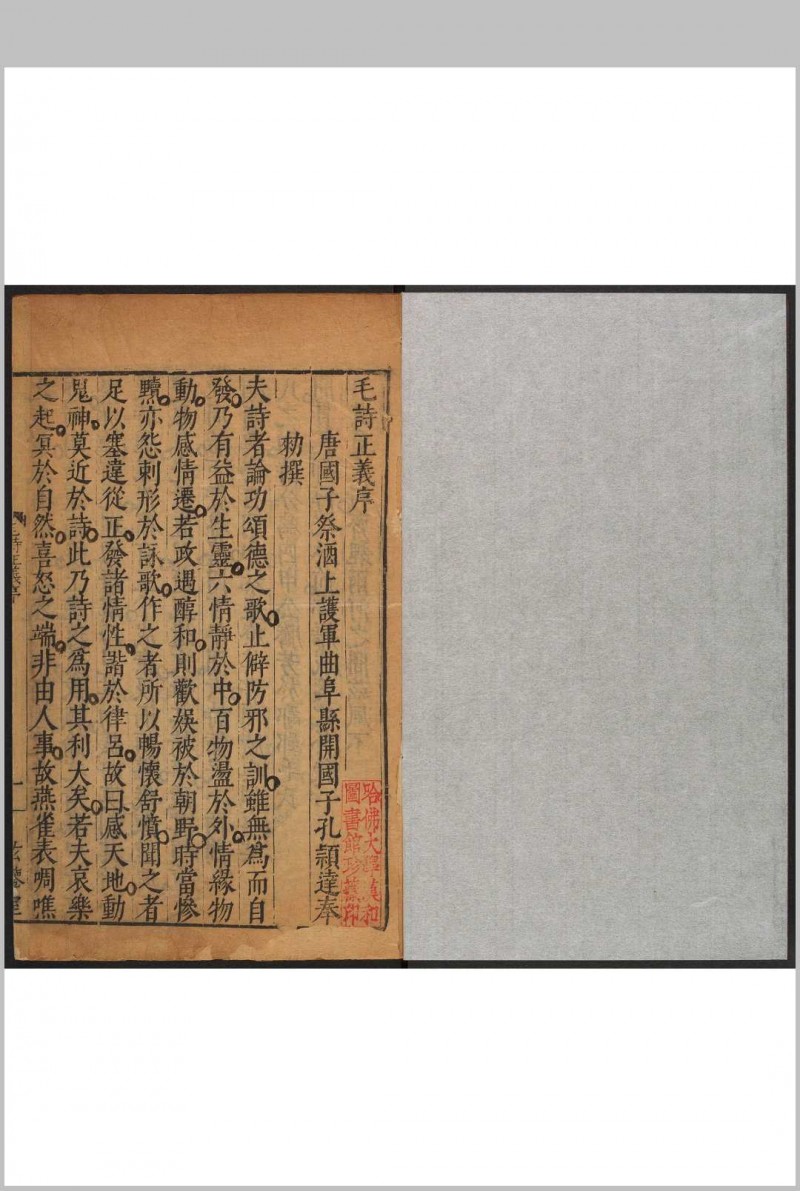 毛詩正義序
唐國子祭酒上護軍曲阜縣開國子孔穎達奉
勑撰
夫詩者論功頌德之歌止僻防邪之訓雖無為而自
發乃有益於生靈六情靜於中百物盪於外情緣物
動物感情遷若政遇醇和則歡娛被於朝野時當慘
黷亦怨刺形於詠歌作之者所以暢懷舒憤聞之者
足以塞違從正發諸情性諧於律呂故曰感天地動
鬼神莫近於詩此乃詩之為用其利大矣若夫哀樂
之起冥於自然喜怒之端非由人事故燕雀表啁噍
哈佛大學漢和
圖書館珍藏印